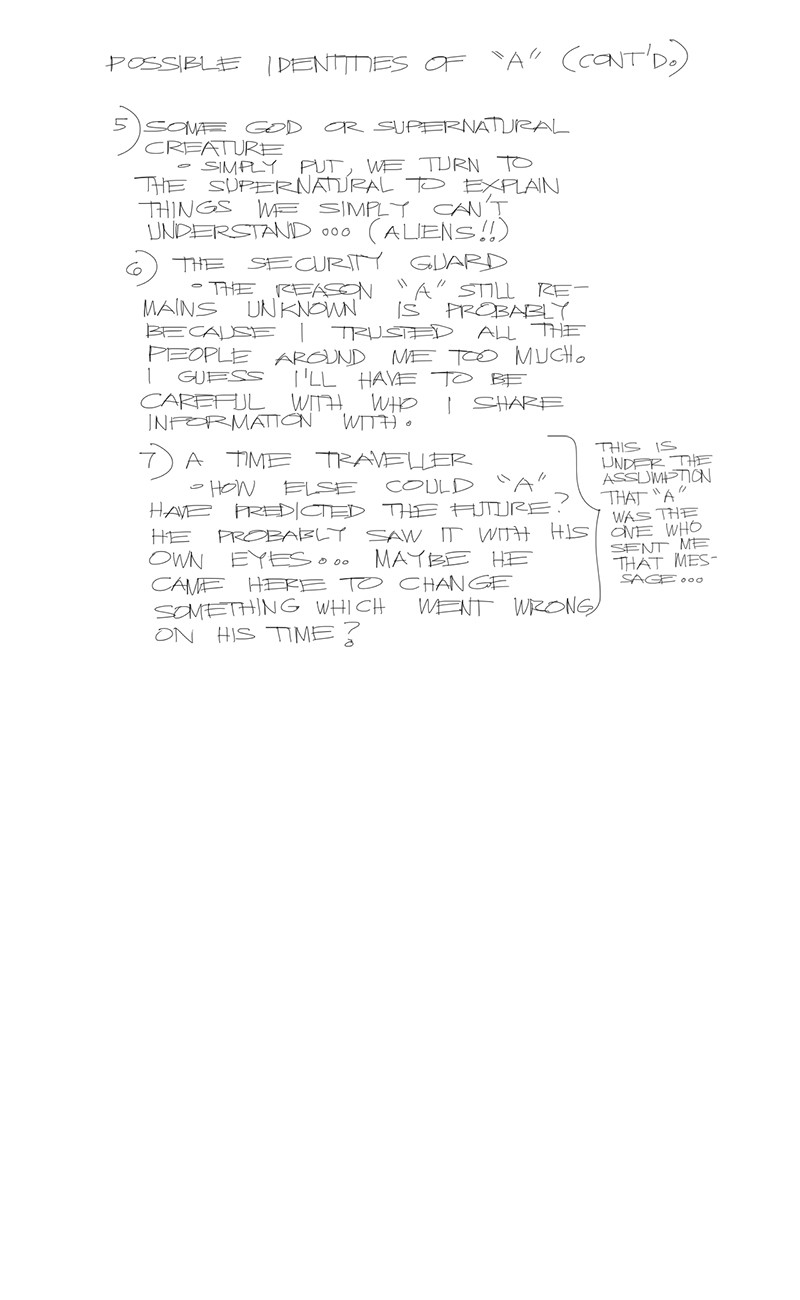 POSSIBLE IDENTITIES OF "A" (CONT'D.)
5) SOME GOD OR SUPERNATURAL
CREATURE
• SIMPLY PUT, WE TURN TO
THE SUPERNATURAL TO EXPLAIN
THINGS WE SIMPLY CAN'T
UNDERSTAND... (ALIENS!!)
6) THE SECURITY GUARD
• THE REASON "A" STILL RE-
MAINS UNKNOWN IS PROBABLY
BECAUSE I TRUSTED ALL THE
PEOPLE AROUND ME TOO MUCH.
I GUESS I'LL HAVE TO BE
CAREFUL WITH WHO I SHARE
INFORMATION WITH.
7) A TIME TRAVELLER
• HOW ELSE COULD "A"
HAVE PREDICTED THE FUTURE?
HE PROBABLY SAW IT WITH HIS
OWN EYES... MAYBE HE
CAME HERE TO CHANGE
SOMETHING WHICH WENT WRONG
ON HIS TIME?
THIS IS
UNDER THE
ASSUMPTION
THAT "A"
WAS THE
ONE WHO
SENT ME
THAT MES-
SAGE...